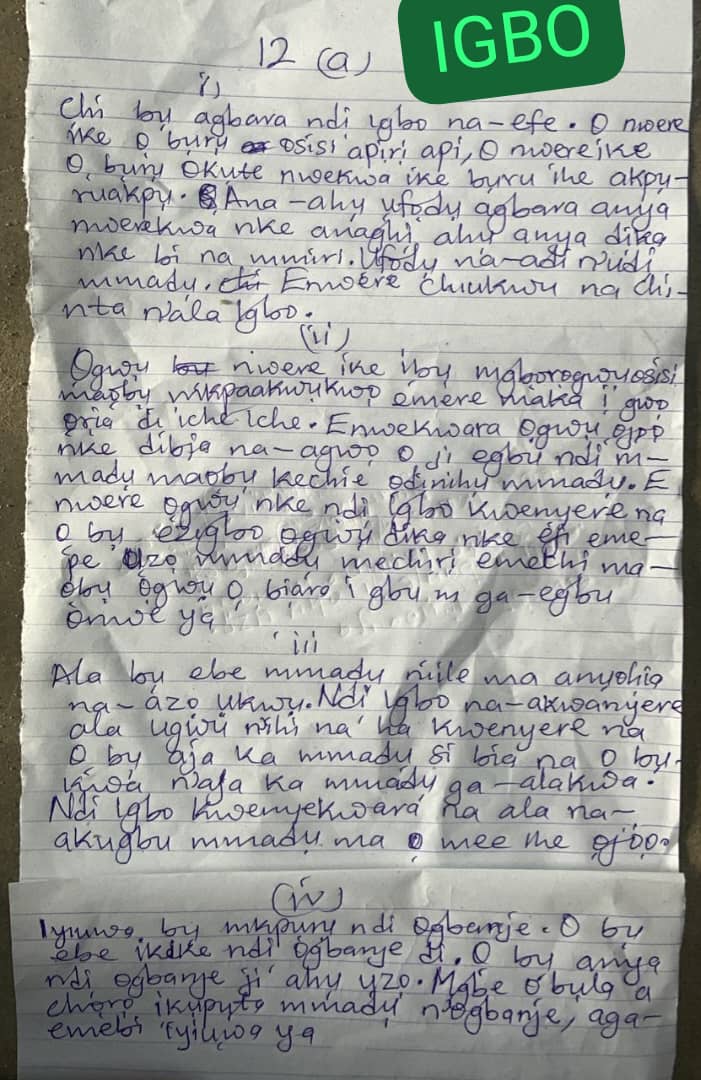 IGBO
12 (a)
i)
Chi bụ agbara ndi igbo na-efe. O nwere
ike o burụ osisi apiri api, O nwere ike
O burụ Okute nwekwa ike bụrụ ihe akpụ-
rụakpụ. Ana-ahụ ụfọdụ agbara anya
nwerekwa nke anaghị ahụ anya dika
nke bi na mmiri. Ụfọdụ na-adi n'udi
mmadụ. Enwere Chiukwu na chi-
nta n'ala Igbo.
(ii)
Ogwụ nwere ike ịbụ mgborogwụ osisi
maọbụ mkpaakwụkwọ emere maka ị gwọ
ọrịa dị iche iche. Enwekwara Ọgwụ ọjọọ
nke dibịa na-agwọ o ji egbu ndi m-
madụ maọbụ kechie ọdịnihụ mmadụ. E
nwere ọgwụ nke ndi Igbo kwenyere na
O bụ ezigbo ogwụ dika nke eji eme-
pe ụzọ mmadụ mechiri emechi ma-
ọbụ ọgwụ O bịara i gbu m ga-egbu
onwe ya
iii
Ala bụ ebe mmadụ niile ma anyọhịa
na-azo ukwu. Ndi Igbo na-akwanyere
ala ugwu n'ihi na ha kwenyere na
O bụ aja ka mmadụ si bịa na O bụ-
kwa n'aja ka mmadụ ga-alakwa.
Ndi Igbo kwenyekwara na ala na-
akugbu mmadụ ma o mee ihe ọjọọ.
(iv)
Iyiụwa bụ mkpụrụ ndi Ogbanje. O bụ
ebe ikike ndi ogbanje di. O bụ anya
ndi ogbanje ji ahụ ụzọ. Mgbe ọbụla a
chọrọ ikupụta mmadụ n'ogbanje, aga-
emebi iyiụwa ya